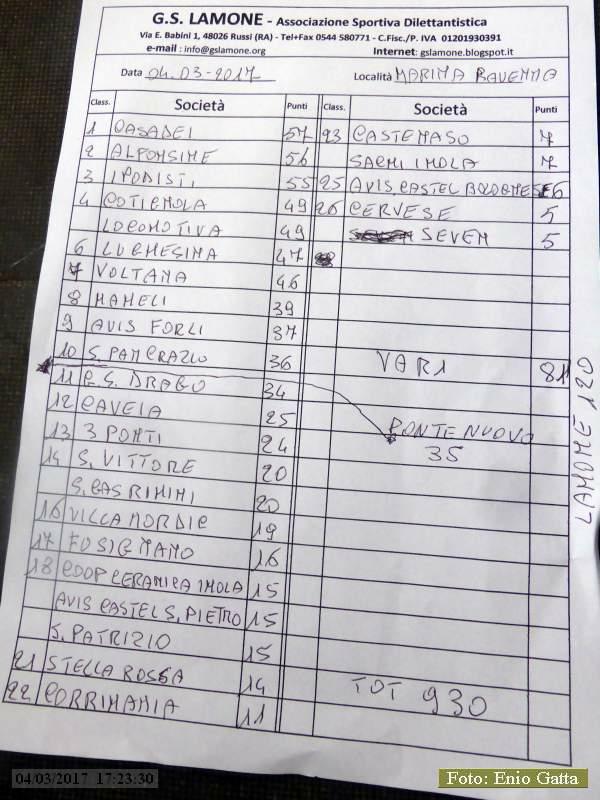 G.S. LAMONE - Associazione Sportiva Dilettantistica
Via E. Babini 1, 48026 Russi (RA) - Tel+Fax 0544 580771 - C.Fisc./P. IVA 01201930391
e-mail : info@gslamone.org Internet: gslamone.blogspot.it
Data 04.03-2017 Località MARINA RAVENNA
Class. Società Punti Class. Società Punti
1 CASADEI 57 23 CASTENASO 7
2 ALFONSINE 56 SACMI IMOLA 7
3 IPODISTI 55 25 AVIS CASTEL BOLOGNESE 6
4 COTIGNOLA 49 26 CERVESE 5
LOCOMOTIVA 49 SEVEN 5
6 LUGHESINA 47
7 VOLTANA 46
8 MAMELI 39
9 AVIS FORLI 37
10 S. PANCRAZIO 36 VARI 81
11 G.S. DRAGO 34
12 CAVEJA 25 PONTE NUOVO
13 3 PONTI 24 35
14 S. VITTORE 20
S. CAS RIMINI 20
16 VILLANORDIC 19
17 FUSIGNANO 16
18 COOP CERAMICA IMOLA 15
AVIS CASTEL S. PIETRO 15
S. PATRIZIO 15
21 STELLA ROSSA 14 TOT 930
22 CORRIMANIA 11
LAMONE 120
04/03/2017 17:23:30
Foto: Enio Gatta